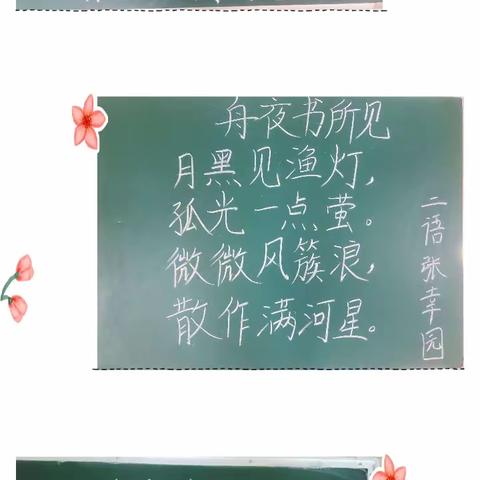 舟夜书所见
月黑见渔灯,
孤光一点萤。
微微风簇浪,
散作满河星。
二语张幸园